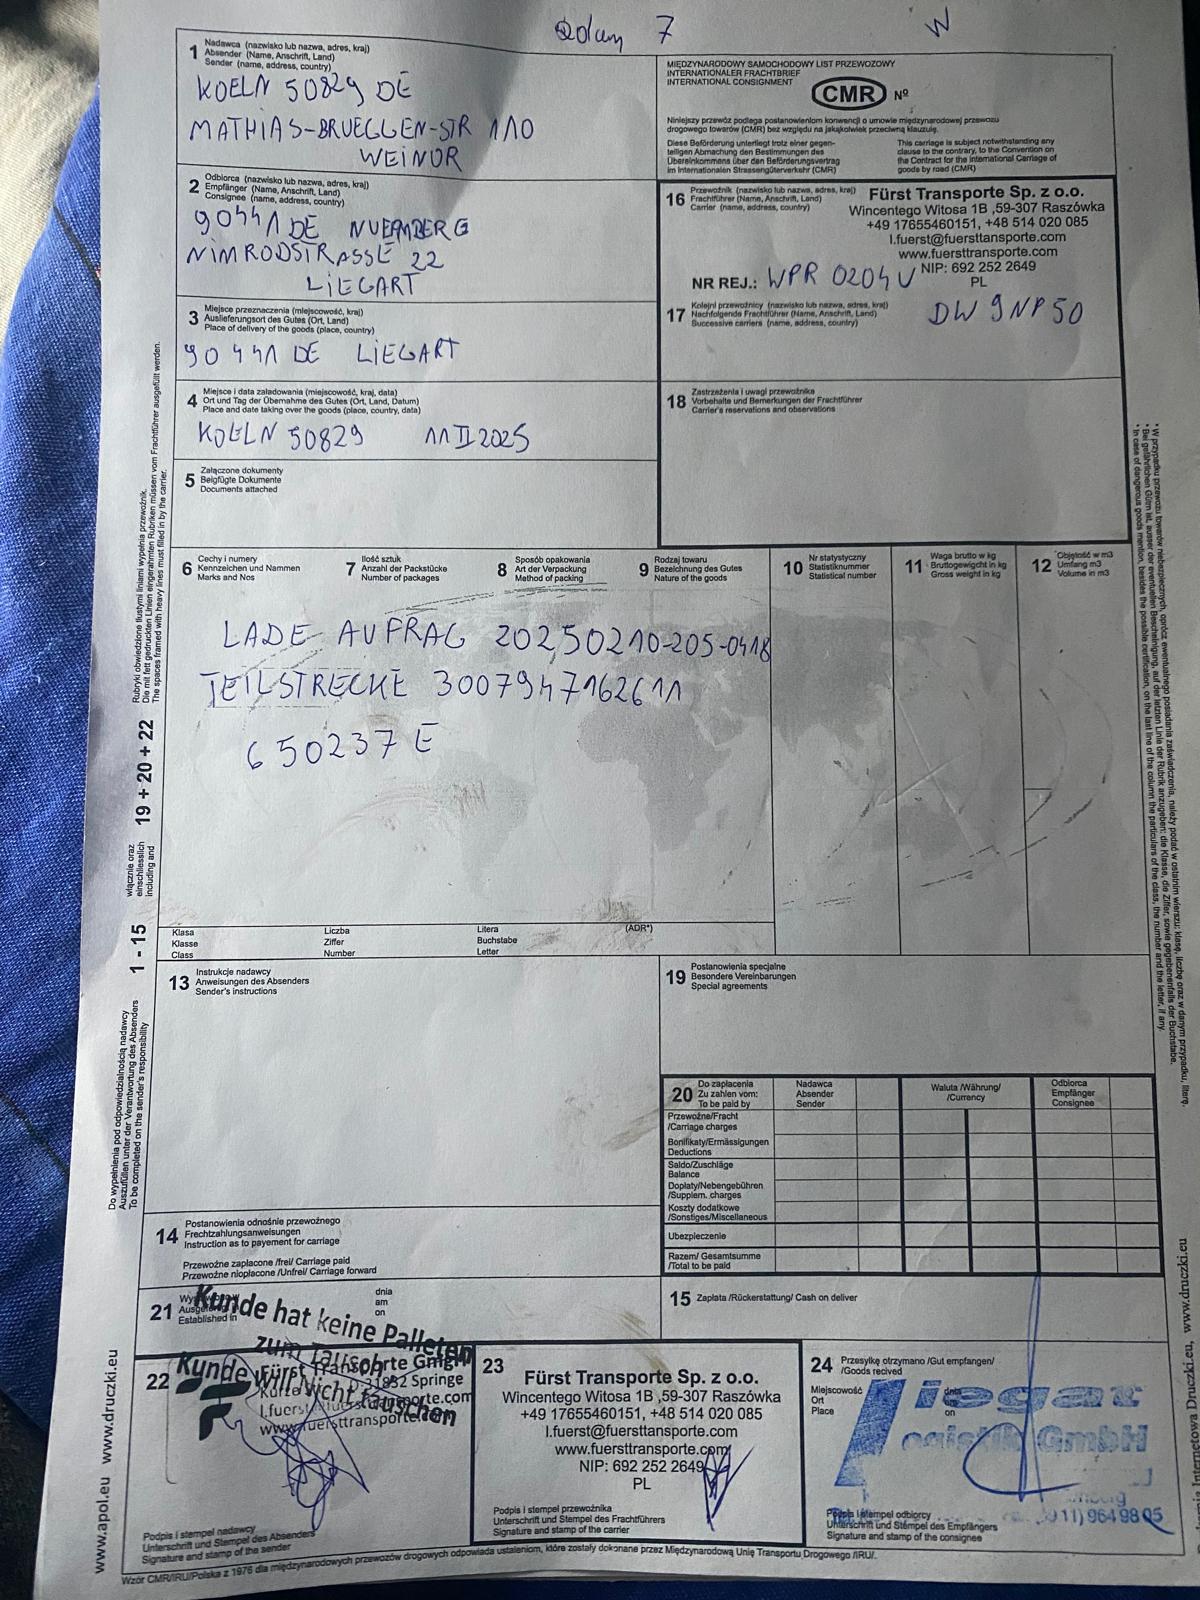 Adam 7 W
1 Nadawca (nazwisko lub nazwa, adres, kraj)
Absender (Name, Anschrift, Land)
Sender (name, address, country)
KOELN 50829 DE
MATHIAS-BRUEGGEN-STR 110
WEINOR
MIĘDZYNARODOWY SAMOCHODOWY LIST PRZEWOZOWY
INTERNATIONALER FRACHTBRIEF
INTERNATIONAL CONSIGNMENT
CMR Nº
Niniejszy przewóz podlega postanowieniom konwencji o umowie międzynarodowej przewozu
drogowego towarów (CMR) bez względu na jakąkolwiek przeciwną klauzulę.
Diese Beförderung unterliegt trotz einer gegen-
teiligen Abmachung den Bestimmungen des
Übereinkommens über den Beförderungsvertrag
im Internationalen Strassengüterverkehr (CMR)
This carriage is subject notwithstanding any
clause to the contrary, to the Convention on
the Contract for the international Carriage of
goods by road (CMR)
2 Odbiorca (nazwisko lub nazwa, adres, kraj)
Empfänger (Name, Anschrift, Land)
Consignee (name, address, country)
90441 DE NUERNBERG
NIMRODSTRASSE 22
LIEGART
16 Przewoźnik (nazwisko lub nazwa, adres, kraj)
Frachtführer (Name, Anschrift, Land)
Carrier (name, address, country)
Fürst Transporte Sp. z o.o.
Wincentego Witosa 1B ,59-307 Raszówka
+49 17655460151, +48 514 020 085
l.fuerst@fuersttransporte.com
www.fuersttransporte.com
NIP: 692 252 2649
PL
NR REJ.: WPR 0204U
3 Miejsce przeznaczenia (miejscowość, kraj)
Auslieferungsort des Gutes (Ort, Land)
Place of delivery of the goods (place, country)
90441 DE LIEGART
17 Kolejni przewoźnicy (nazwisko lub nazwa, adres, kraj)
Nachfolgende Frachtführer (Name, Anschrift, Land)
Successive carriers (name, address, country)
DW 9NP50
4 Miejsce i data załadowania (miejscowość, kraj, data)
Ort und Tag der Übernahme des Gutes (Ort, Land, Datum)
Place and date taking over the goods (place, country, data)
KOELN 50829 11 II 2025
18 Zastrzeżenia i uwagi przewoźnika
Vorbehalte und Bemerkungen der Frachtführer
Carrier's reservations and observations
5 Załączone dokumenty
Beigfügte Dokumente
Documents attached
6 Cechy i numery
Kennzeichen und Nammen
Marks and Nos
7 Ilość sztuk
Anzahl der Packstücke
Number of packages
8 Sposób opakowania
Art der Verpackung
Method of packing
9 Rodzaj towaru
Bezeichnung des Gutes
Nature of the goods
10 Nr statystyczny
Statistiknummer
Statistical number
11 Waga brutto w kg
Bruttogewicht in kg
Gross weight in kg
12 Objętość w m3
Umfang m3
Volume in m3
LADE AUFRAG 20250210-205-0418
TEILSTRECKE 3007947162611
650237 E
Klasa Liczba Litera (ADR*)
Klasse Ziffer Buchstabe
Class Number Letter
13 Instrukcje nadawcy
Anweisungen des Absenders
Sender's instructions
19 Postanowienia specjalne
Besondere Vereinbarungen
Special agreements
20 Do zapłacenia
Zu zahlen vom:
To be paid by
Nadawca
Absender
Sender
Waluta /Währung/
/Currency
Odbiorca
Empfänger
Consignee
Przewoźne/Fracht
/Carriage charges
Bonifikaty/Ermässigungen
Deductions
Saldo/Zuschläge
Balance
Dopłaty/Nebengebühren
/Supplem. charges
Koszty dodatkowe
/Sonstiges/Miscellaneous
Ubezpieczenie
Razem/ Gesamtsumme
/Total to be paid
14 Postanowienia odnośnie przewoźnego
Frechtzahlungsanweisungen
Instruction as to payment for carriage
Przewoźne zapłacone /frei/ Carriage paid
Przewoźne nieopłacone /Unfrei/ Carriage forward
21
Established in
dnia
am
on
15 Zapłata /Rückerstattung/ Cash on deliver
Kunde hat keine Palleten
zum Tauschen
Kunde will nicht tauschen
22
Fürst Transporte GmbH
31832 Springe
Podpis i stempel nadawcy
Unterschrift und Stempel des Absenders
Signature and stamp of the sender
23 Fürst Transporte Sp. z o.o.
Wincentego Witosa 1B ,59-307 Raszówka
+49 17655460151, +48 514 020 085
l.fuerst@fuersttransporte.com
www.fuersttransporte.com
NIP: 692 252 2649
PL
Podpis i stempel przewoźnika
Unterschrift und Stempel des Frachtführers
Signature and stamp of the carrier
24 Przesyłkę otrzymano /Gut empfangen/
/Goods recived
Miejscowość
Ort
Place
dnia
on
Liegart
Logistik GmbH
Podpis i stempel odbiorcy
Unterschrift und Stempel des Empfängers
Signature and stamp of the consignee
Wzór CMR/IRU/Polska z 1976 dla międzynarodowych przewozów drogowych odpowiada ustaleniom, które zostały dokonane przez Międzynarodową Unię Transportu Drogowego /IRU/.
Rubryki obwiedzione tłustymi liniami wypełnia przewoźnik.
Die mit fett gedruckten Linien eingerahmten Rubriken müssen vom Frachtführer ausgefüllt werden.
The spaces framed with heavy lines must filled in by the carrier.
19 + 20 + 22
włącznie oraz
einschliesslich
including and
1 - 15
Do wypełnienia pod odpowiedzialnością nadawcy
Auszufüllen unter der Verantwortung des Absenders
To be completed on the sender's responsibility
www.apol.eu www.druczki.eu
Internetowa Druczki.eu, www.druczki.eu